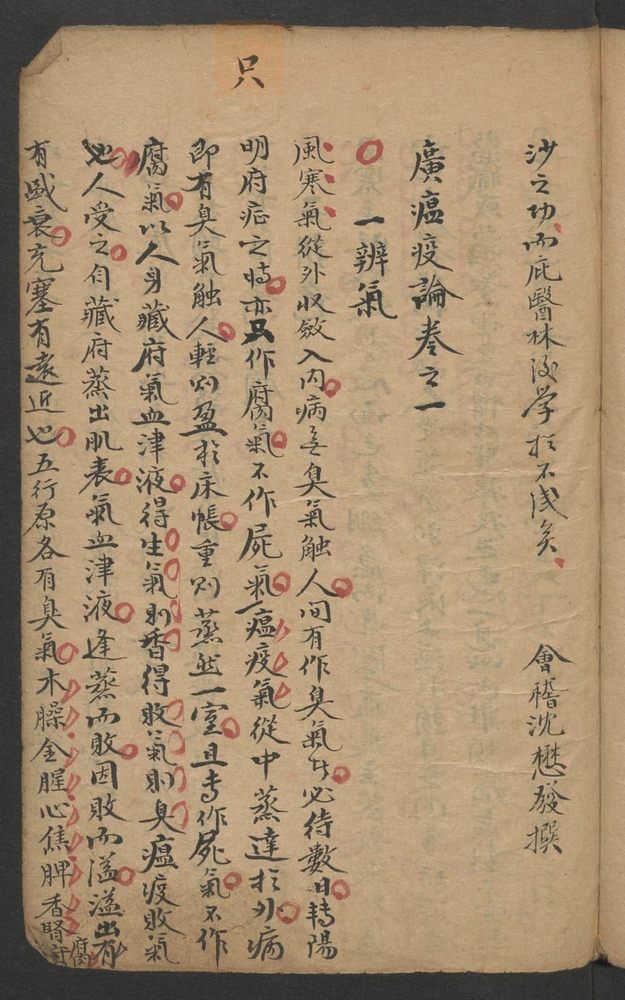 只
沙之功而庇醫林後學於不浅矣　會稽沈懋發撰
廣瘟疫論卷之一
一辨氣
風寒氣從外收斂入内病無臭氣觸人间有作臭氣者必待數日轉陽
明府症之時亦只作腐氣不作屍氣瘟疫氣從中蒸達於外病
即有臭氣觸人輕則盈於床帳重則蒸然一室且专作屍氣不作
腐氣以人身藏府氣血津液得生氣則香得敗氣則臭瘟疫敗氣
也人受之自藏府蒸出肌表氣血津液逢蒸而敗因敗而溢溢出有
有盛衰充塞有遠近也五行原各有臭氣木臊金腥心焦脾香腎腐